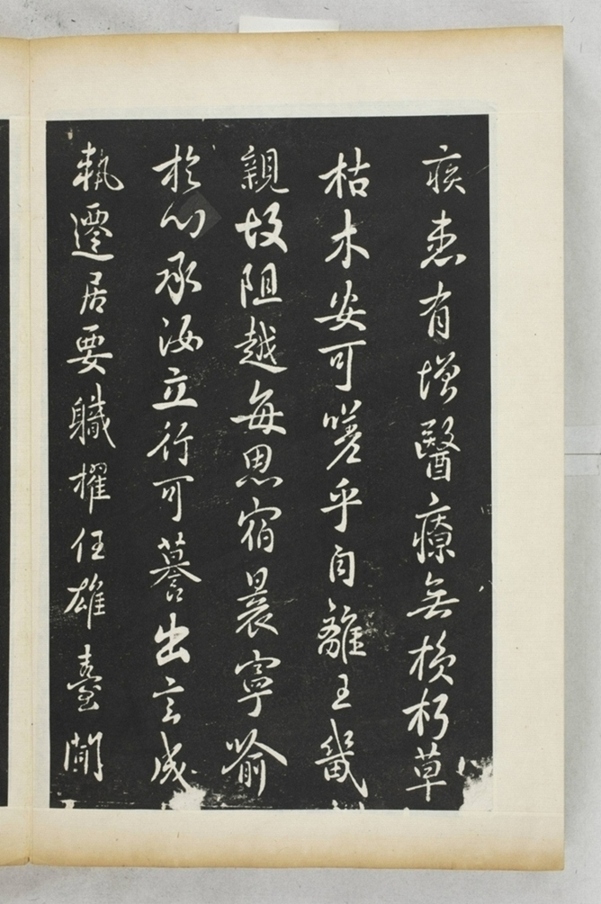 疾患有增醫療無損朽草
枯木安可嗟乎自離王畿
親故阻越每思宿晨寧喻
於心承汝立行可謩出言成
軌遷居要職擢任雄臺